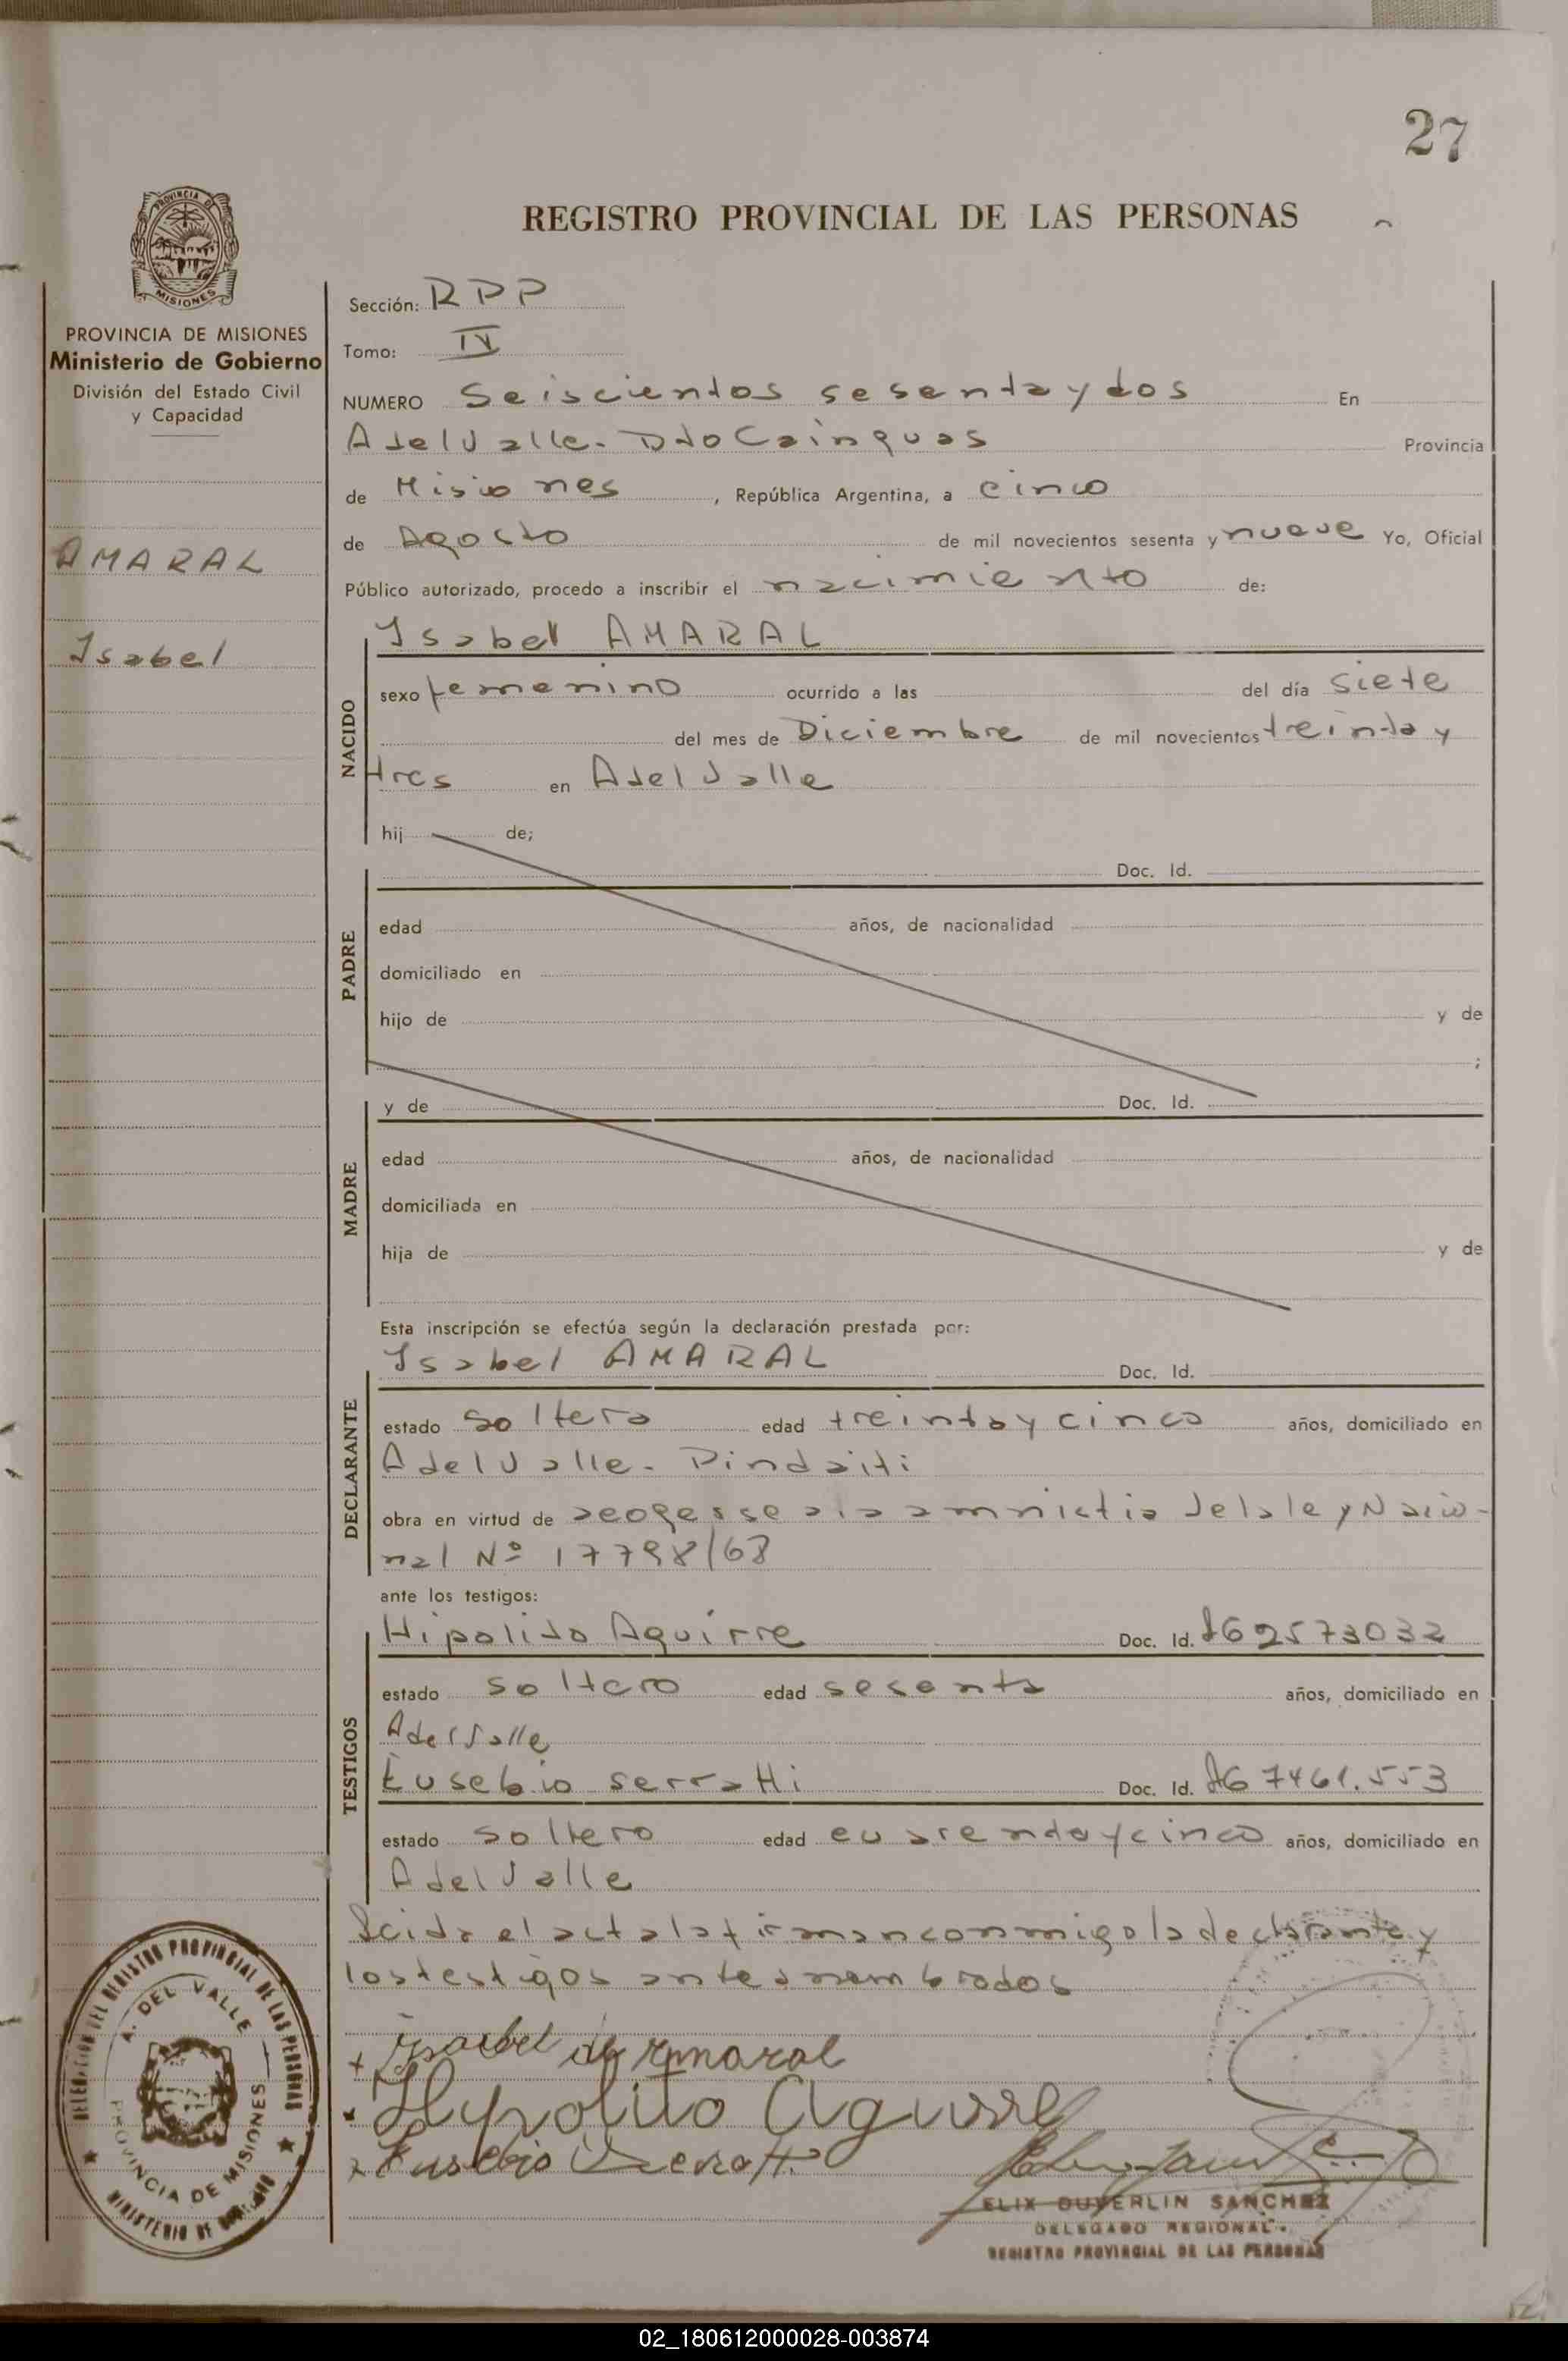 27
REGISTRO PROVINCIAL DE LAS PERSONAS
PROVINCIA DE MISIONES
MISIONES
PROVINCIA DE MISIONES
Ministerio de Gobierno
División del Estado Civil
y Capacidad
AMARAL
Isabel
Sección: RPP
Tomo: IV
NUMERO Seiscientos sesenta y dos En
A del Valle - Dto Cainguas Provincia
de Misiones, República Argentina, a cinco
de Agosto de mil novecientos sesenta y nueve Yo, Oficial
Público autorizado, procedo a inscribir el nacimiento de:
NACIDO
Isabel AMARAL
sexo femenino ocurrido a las del día siete
del mes de Diciembre de mil novecientos treinta y
tres en A del Valle
hij de;
PADRE
Doc. Id.
edad años, de nacionalidad
domiciliado en
hijo de y de
;
MADRE
y de Doc. Id.
edad años, de nacionalidad
domiciliada en
hija de y de
Esta inscripción se efectúa según la declaración prestada por:
DECLARANTE
Isabel AMARAL Doc. Id.
estado soltera edad treinta y cinco años, domiciliado en
A del Valle - Pindaiti
obra en virtud de acogerse a la amnistia de la ley Nacio-
nal Nº 17798/68
ante los testigos:
TESTIGOS
Hipolito Aguirre Doc. Id. 2573032
estado soltero edad sesenta años, domiciliado en
A del Valle
Eusebio Serratti Doc. Id. 7461.553
estado soltero edad cuarenta y cinco años, domiciliado en
A del Valle
Leida el acta la firman conmigo la declarante y
los testigos antes nombrados
+ Isabel de amaral
Hypolito Aguirre
Eusebio Serratti
DELEGACION DEL REGISTRO PROVINCIAL DE LAS PERSONAS
A. DEL VALLE
PROVINCIA DE MISIONES
MINISTERIO DE GOBIERNO
ELIX DUVERLIN SANCHEZ
DELEGADO REGIONAL
REGISTRO PROVINCIAL DE LAS PERSONAS
02_180612000028-003874